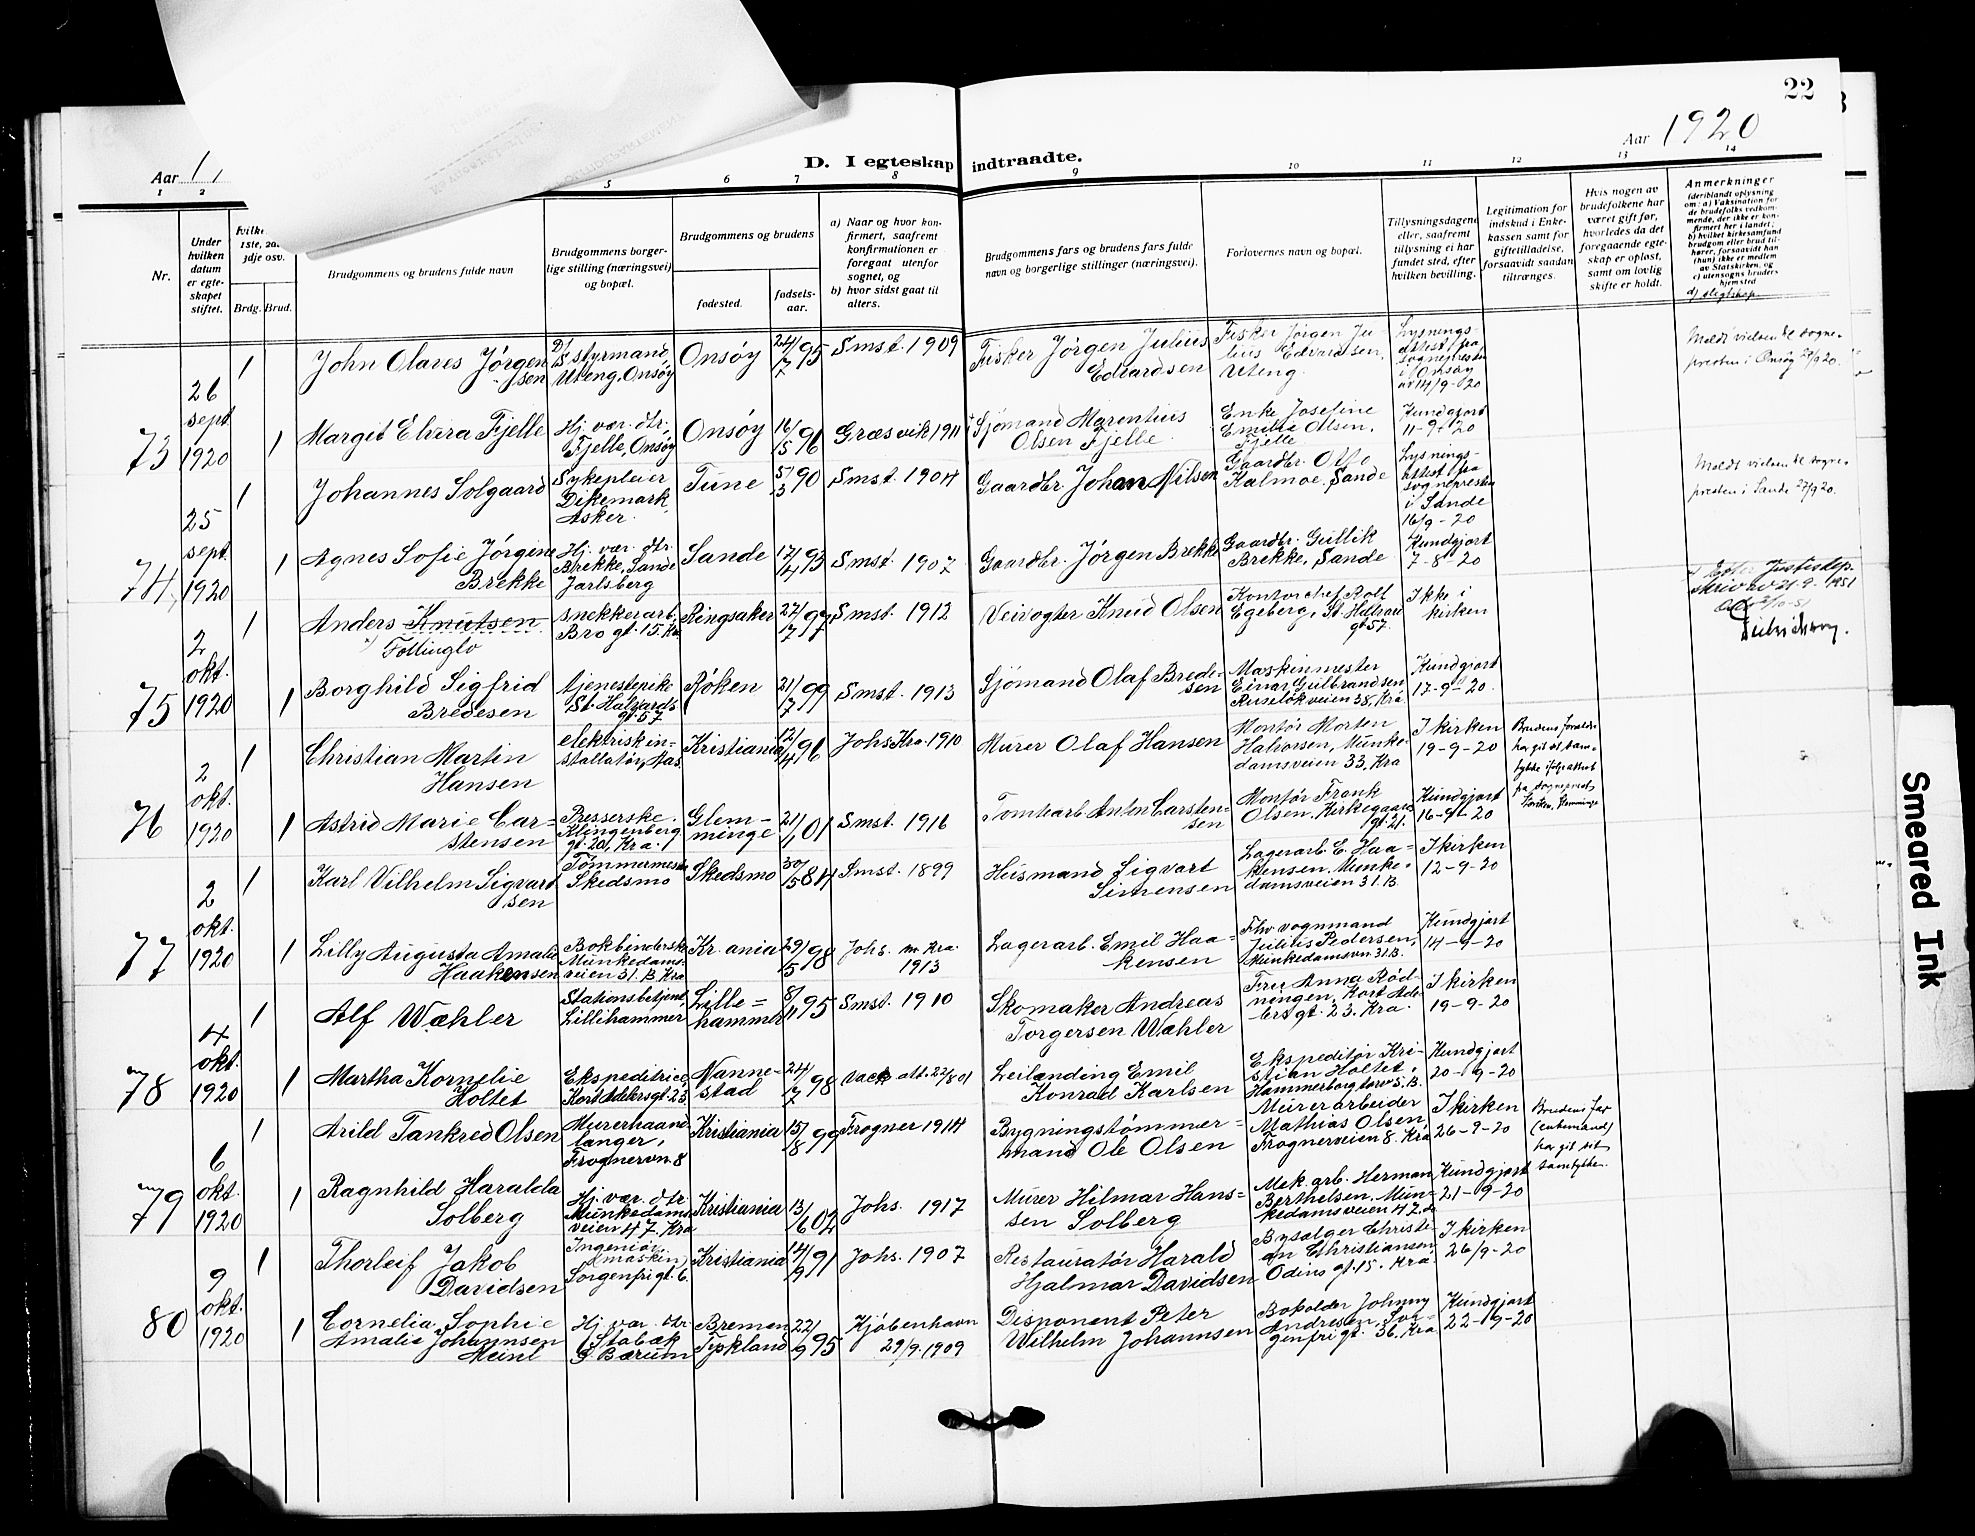 22
Aar 1920
Aar
D. I egteskap indtraadte.
1 2 5 6 7 8 9 10 11 12 13 14
Nr.
Under
hvilken
datum
er egte-
skapet
stiftet.
1ste, 2d
3dje osv.
Brdg. Brud.
Brudgommens og brudens fulde navn
Brudgommens borger-
lige stilling (næringsvei)
og bopæl.
Brudgommens og brudens
fødested.
fødsels-
aar.
a) Naar og hvor kon-
firmert, saafremt
konfirmationen er
foregaat utenfor
sognet, og
b) hvor sidst gaat til
alters.
Brudgommens fars og brudens fars fulde
navn og borgerlige stillinger (næringsvei).
Forlovernes navn og bopæl.
Tillysningsdagene
eller, saafremt
tillysning ei har
fundet sted, efter
hvilken bevilling.
Legitimation for
indskud i Enke-
kassen samt for
giftetilladelse,
forsaavidt saadan
tiltrænges.
Hvis nogen av
brudefolkene har
været gift før,
hvorledes da det
foregaaende egte-
skap er opløst,
samt om lovlig
skifte er holdt.
Anmerkninger
(deriblandt oplysning
om: a) Vaksination for
de brudefolks vedkom-
mende, der ikke er kon-
firmert her i landet;
b) hvilket kirkesamfund
brudgom eller brud til-
hører, forsaavidt han
(hun) ikke er medlem
av Statskirken, og
c) utensogns bruders
hjemsted
d) slegtskap.
73
26
sept.
1920
1
John Olares Jørgen
sen
styrmand,
Uteng, Onsøy
Onsøy
24/7 95
Smst. 1909
Fisker Jørgen Julius
Edvardsen
Fisker Jørgen Ju-
lius Edvardsen,
Uteng.
Lysnings-
attest fra
sognepresten
i Onsøy
av 14/9-20
Meldt vielsen til sogne-
presten i Onsøy 27/9 20.
1
Margit Elvira Fjelle
Hj. vær. dtr.
Fjelle, Onsøy
Onsøy
16/5 96
Græsvik 1911
Sjømand Marentius
Olsen Fjelle
Enke Josefine
Emilie Olsen,
Fjelle
Kundgjort
11-9-20
74
25
sept.
1920
1
Johannes Solgaard
Sykepleier
Dikemark,
Asker.
Tune
5/3 90
Smst. 1904
Gaardbr. Johan Nilsen
Gaardbr. Otto
Kalmoe, Sande
Lysnings-
attest fra
sognepresten
i Sande
16/9-20
Meldt vielsen til sogne-
presten i Sande 27/9 20.
1
Agnes Sofie Jørgine
Brekke
Hj. vær. dtr.
Brekke, Sande
Jarlsberg
Sande
17/4 93
Smst. 1907
Gaardbr. Jørgen Brekke
Gaardbr. Gullik
Brekke, Sande
Kundgjort
7-8-20
75
2
okt.
1920
1
Anders Knutsen
Follinglo
Snekkerarb.
Bro gt. 15. Kra
Ringsaker
27/7 97
Smst. 1912
Veivogter Knud Olsen
Kontorchef Rolf
Egeberg, St. Halvards
gt. 57.
Ikke i
kirken
Justisdep.
skriv av 21.9.1951
1
Borghild Sigfrid
Bredesen
tjenestepike
St. Halvards
gt. 57
Røken
21/7 99
Smst. 1913
Sjømand Olaf Brede-
sen
Maskinmester
Einar Gulbrandsen
Ruseløkveien 38, Kra.
Kundgjort
17-9-20.
76
2
okt.
1920
1
Christian Martin
Hansen
elektrisk in-
stallatør, Aas
Kristiania
12/4 96
Johs Kra. 1910
Murer Olaf Hansen
Montør Morten
Halvorsen, Munke-
damsveien 33, Kra
I kirken
19-9-20
Brudens forældre
har git sit sam-
tykke ifølge attest
fra sogneprest
1
Astrid Marie Car-
stensen
Presserske.
Klingenberg
gt. 20, Kra.
Glem-
minge
21/1 01
Smst. 1916
Tomtearb. Anton Carsten-
sen
Montør Frank
Olsen, Kirkegaards
gt. 21.
Kundgjort
16-9-20
77
2
okt.
1920
1
Karl Vilhelm Sigvart
sen
Tømmermester
Skedsmo
Skedsmo
30/5 84
Smst. 1899
Husmand Sigvart
Simensen
Lagerarb. E. Haa-
kensen, Munke-
damsveien 31. B.
I kirken
12-9-20
1
Lilly Augusta Amalie
Haakensen
Bokbinderske
Munkedams-
veien 31. B. Kra
Kr.ania
29/5 98
Johs. Kra.
1913
Lagerarb. Emil Haa-
kensen
Fhv vognmand
Julius Pedersen,
Munkedamsvn. 31. B.
Kundgjort
14-9-20
78
4
okt.
1920
1
Alf Wæhler
Stationsbetjent
Lillehammer
Lille-
hammer
8/11 95
Smst. 1910
Skomaker Andreas
Torgersen Wæhler
Fru Anna Rød-
ningen, Kort Ade-
lers gt. 23. Kra.
I kirken
19-9-20
1
Martha Kornelie
Holtet
Ekspeditrice,
Kort Adelersgt. 23
Nanne-
stad
24/7 98
vac. att. 22/8 01
Leilending Emil
Konrad Karlsen
Ekspeditør Kri-
stian Holtet,
Hammerborg torv 5. B.
Kundgjort
20-9-20
79
6
okt.
1920
1
Arild Tankred Olsen
Murerhaand-
langer,
Frognervn. 8
Kristiania
15/8 99
Frogner 1914
Bygningstømmer-
mand Ole Olsen
Murerarbeider
Mathias Olsen,
Frognerveien 8. Kra
I kirken
26-9-20
Brudens far
(enkemand)
har git sit
samtykke.
1
Ragnhild Haralda
Solberg
Hj. vær. dtr.
Munkedams-
veien 47. Kra
Kristiania
13/6 02
Johs. 1917
Murer Hilmar Hans-
sen Solberg
Mek. arb. Herman
Berthelsen, Mun-
kedamsveien 47.
Kundgjort
21-9-20
80
9
okt.
1920
1
Thorleif Jakob
Davidsen
Ingeniør
(maskin)
Sorgenfrigt. 6.
Kristiania
14/9 91
Johs. 1907
Restauratør Harald
Hjalmar Davidsen
Bysælger Christi-
an Christiansen,
Odins gt. 15. Kra.
I kirken
26/9-20
1
Cornelia Sophie
Amalie Johannsen
Meinl
Hj. vær. dtr.
Stabæk
Bærum
Bremen
Tyskland
22/9 95
Kjøbenhavn
29/9. 1909
Disponent Peter
Wilhelm Johannsen
Bokolder Johnny
Andresen, Sor-
genfri gt. 36. Kra
Kundgjort
22-9-20
Smeared Ink